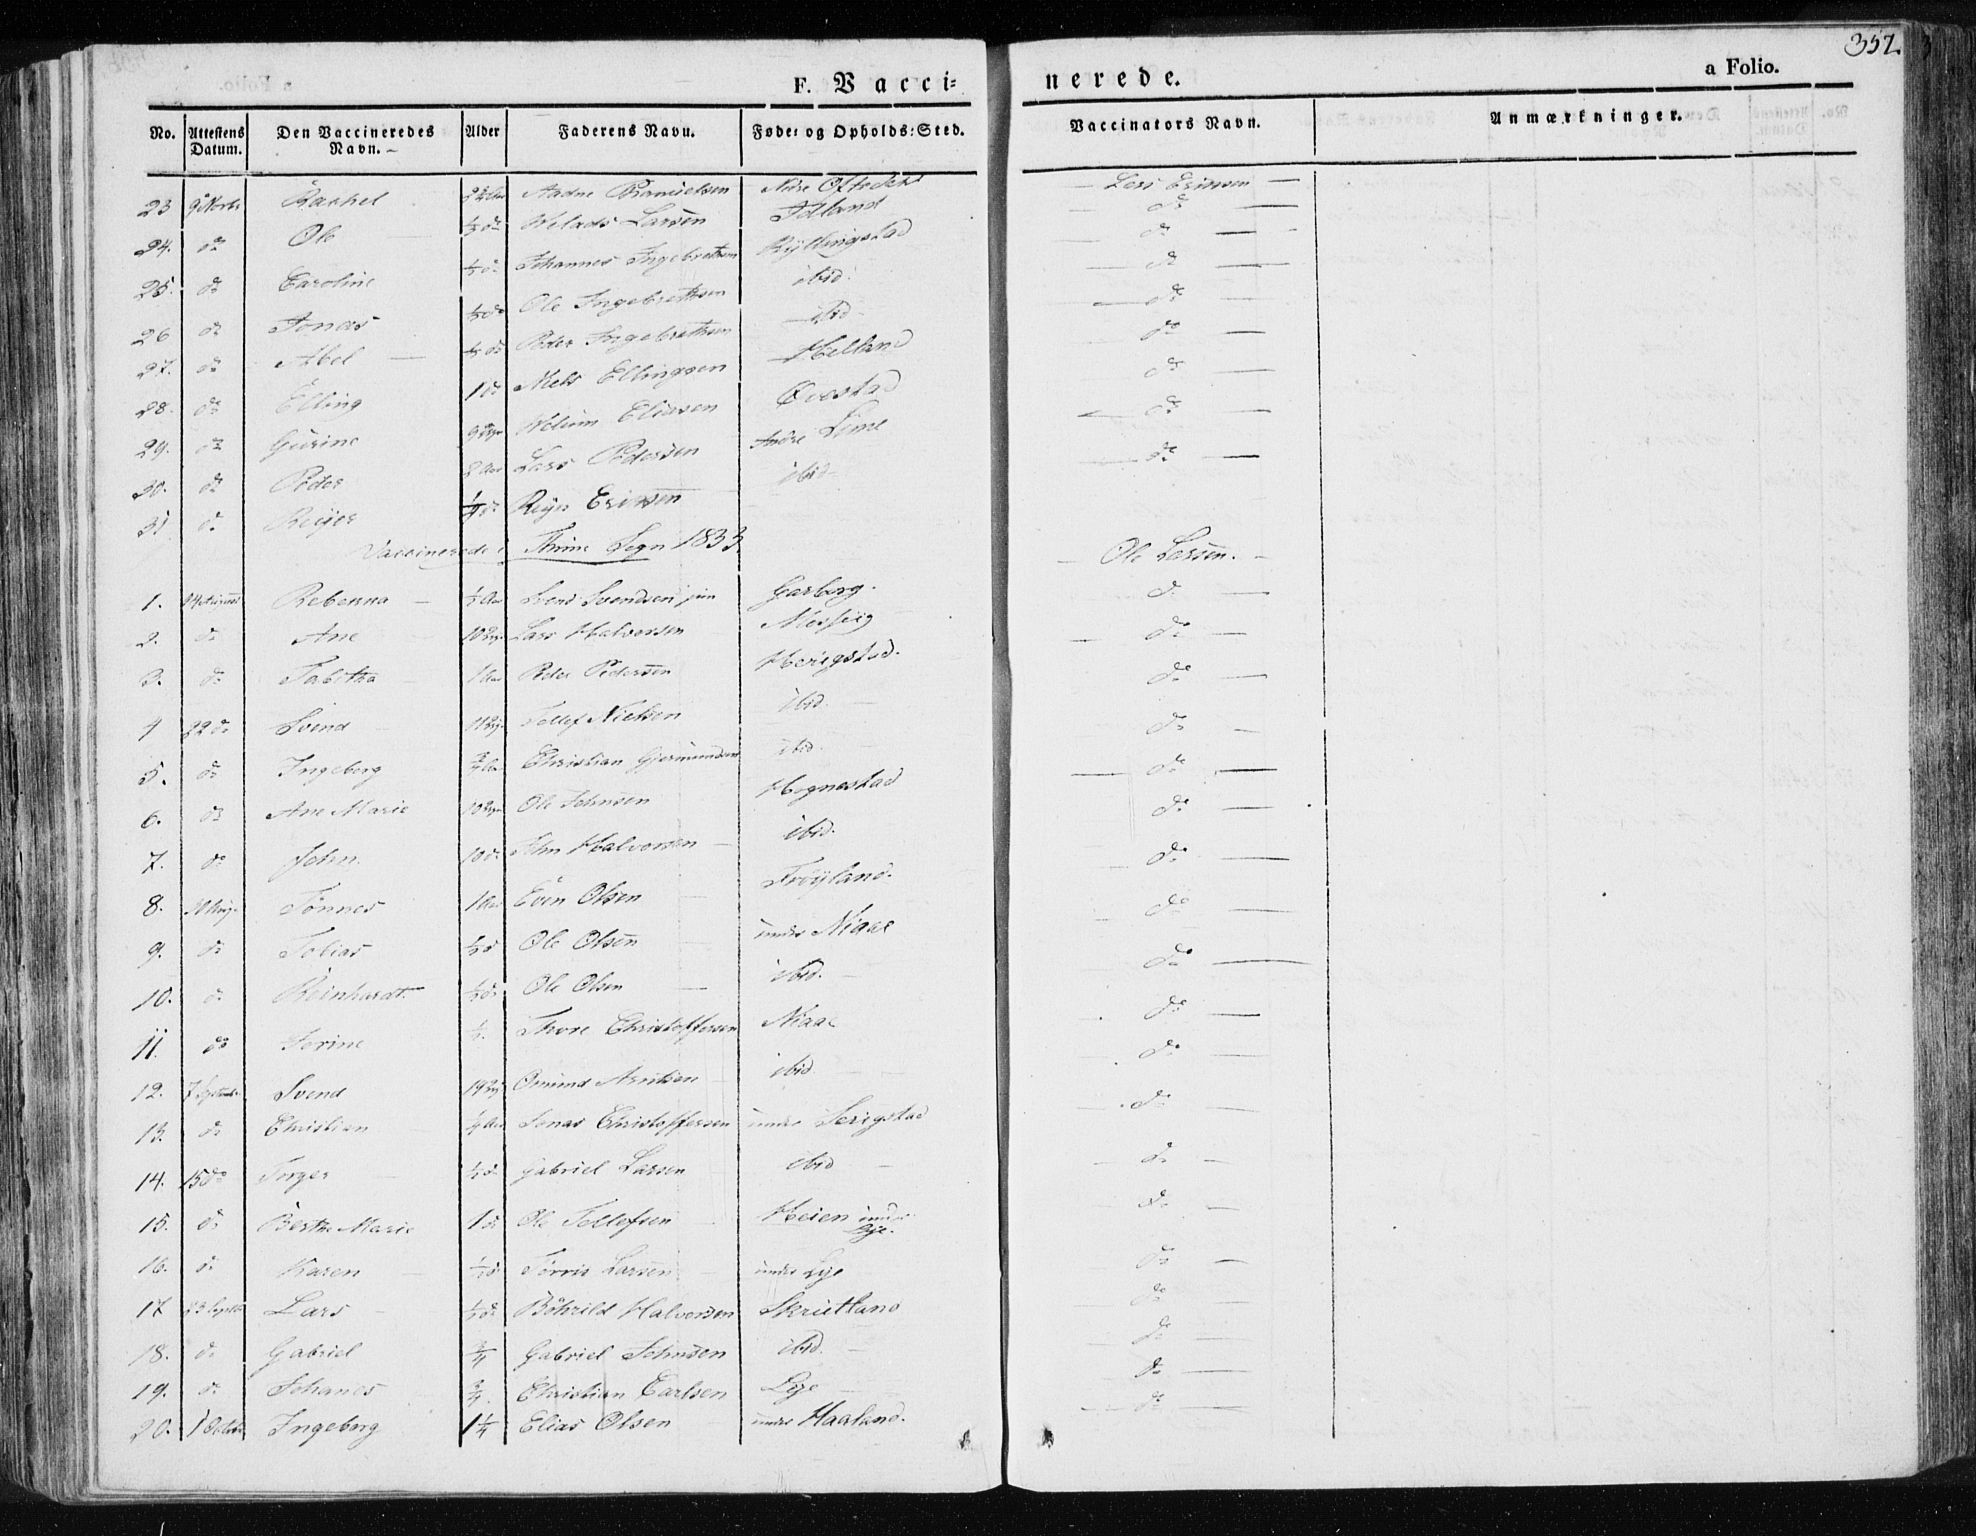 352.
F. Vacci=
nerede.
a Folio.
No. Attestens Datum. Den Vaccineredes Navn. Alder Faderens Navn. Føde- og Opholds-Sted. Vaccinators Navn. Anmærkninger.
23 Rachel Aadne Lars Ericsen
24. do Ole ½ do Larsen Idland do
25. do Caroline ½ do Johannes Ingebrethsen Kyllingstad do
26 do Jonas ½ do Ole Ingebrethsen ibid. do
27. do Abel ½ do Peder Ingebrethsen ibid. do
28. do Elling 1 do Niels Ellingsen Helland do
29. do Gurine Eliasen Øvestad do
30. do Peder 2 Aar Lars Pedersen Andre Lime do
31 do Reijer do Reijer Ericsen ibid do
Vaccinerede i Thime Sogn 1833
1. Rebecca ½ Aar Svend Svendsen jun Garborg. Ole Larsen.
2. do Ane Lars Halvorsen Mossig do
3. do Tabitha 1 Aar Peder Pedersen Herigstad. do
4 22 do Svend Tollef Nielsen ibid. do
5. do Ingeborg ¾ Aar Christian Gjermundsen ibid. do
6. do Ane Marie Ole Johnsen Hognestad do
7. do John 10 do John Halvorsen ibid. do
8. Tønnes 1 Aar Even Olsen Frøyland. do
9. do Tobias ½ do Ole Olsen under Niaae do
10. do Reinhardt ½ do Ole Olsen ibid. do
11. do Serine Thore Christoffersen Niaae do
12. 7 Septembr Svend Omund Arntsen ibid. do
13. do Christian Jonas Christoffersen under Serigstad do
14. 15 do Torger ½ do Gabriel Larsen ibid do
15. do Berthe Marie 1 do Ole Tollefsen Heien under Lye. do
16. do Karen ½ do Tørris Larsen under Lye do
17 23 Septbr Lars ½ do Bøhrild Halvorsen Skrutland do
18. do Gabriel ¾ Gabriel Johnsen ibid. do
19. do Johanes ¾ Christian Carlsen Lye do
20. 1 Octobr Ingeborg 1¼ Elias Olsen under Haaland. do